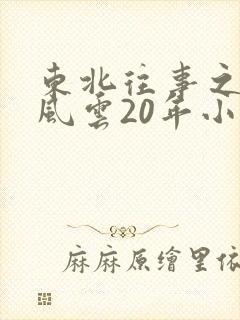 東北往事之
風雲20年小
麻麻原繪里依